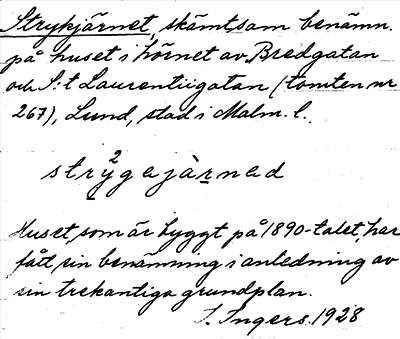 Strykjärnet, skämtsam benämn.
på huset i hörnet av Bredgatan
och S:t Laurentiigatan (tomten nr
267), Lund, stad i Malm. l.
2
strygajärnad
Huset, som är byggt på 1890-talet, har
fått sin benämning i anledning av
sin trekantiga grundplan.
I. Ingers. 1928